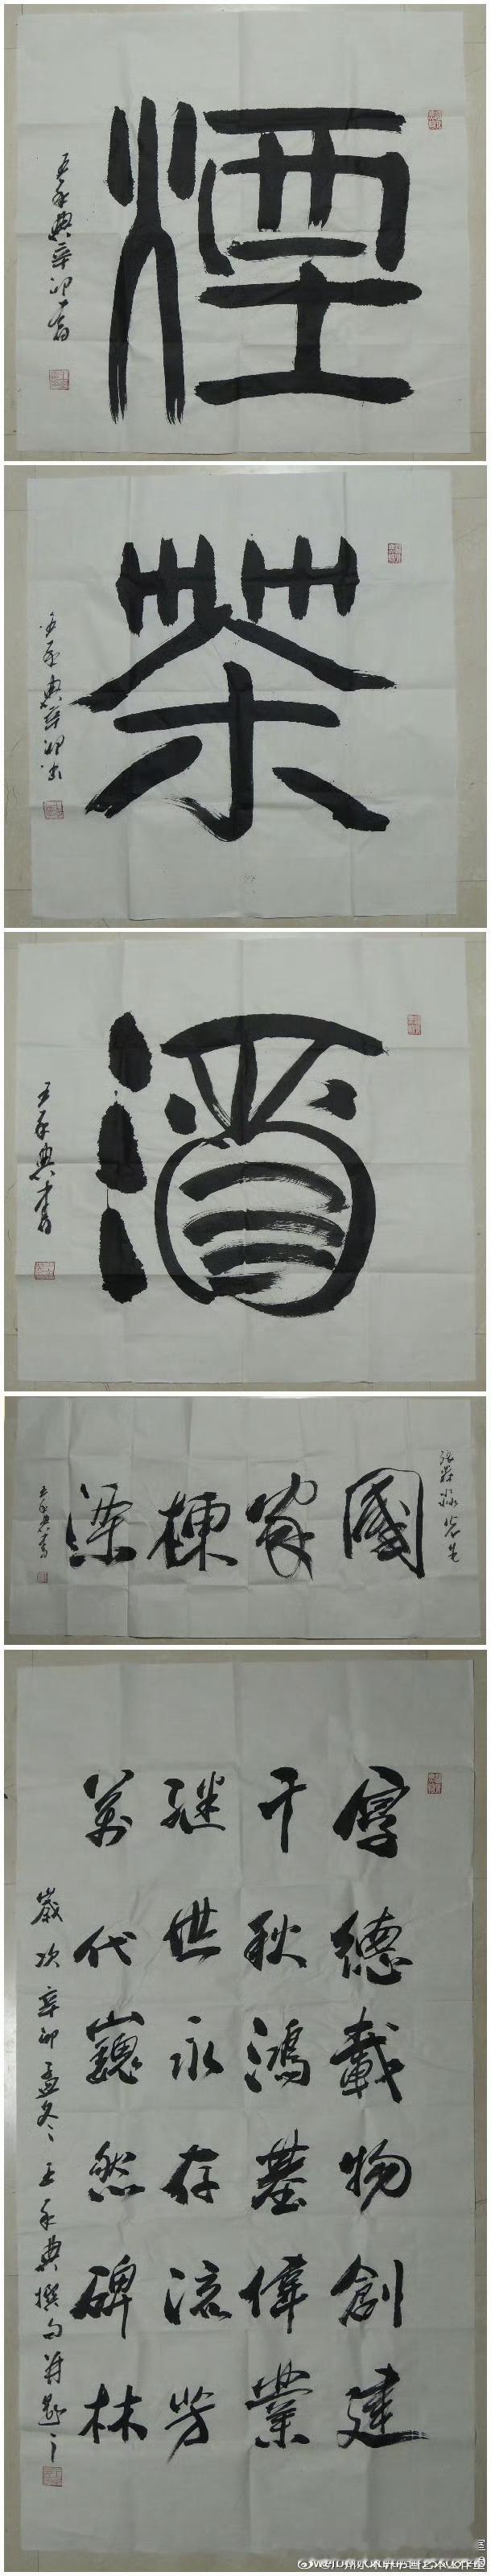 煙
王永典辛卯書
茶
王永典辛卯書
酒
王永典書
國家棟梁
王永典書
厚德載物創建
千秋鴻基偉業
繼世永存流芳
萬代巍然碑林
歲次辛卯孟冬王永典撰句並題